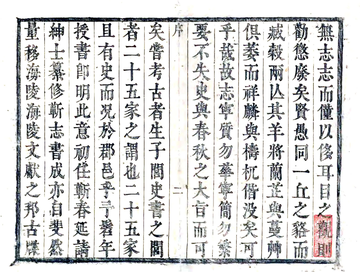 無志志而僅以侈耳目之觀則
勸懲廢矣賢愚同一丘之貉而
臧穀兩亾其羊將蘭芷與蕭艸
俱萎而祥麟與檮杌偕沒矣可
乎哉故志寧質勿華寧簡勿繁
要不失史與春秋之大旨而可
序
二
矣嘗考古者生子閭史書之閭
者二十五家之謂也二十五家
且有史而况於郡邑乎予昔年
授書郎明此意初任蘄春延請
紳士纂修蘄志書成亦自斐然
量移海陵海陵文獻之邦古蹟